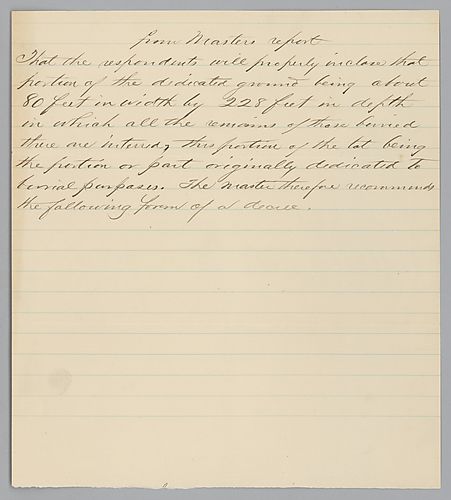 from Masters report
That the respondents will properly inclose that
portion of the dedicated ground being about
80 feet in width by 228 feet in depth
in which all the remains of those buried
there are interred, this portion of the lot being
the portion or part originally dedicated to
burial purposes. The Master therefore recommends
the following form of a decree.